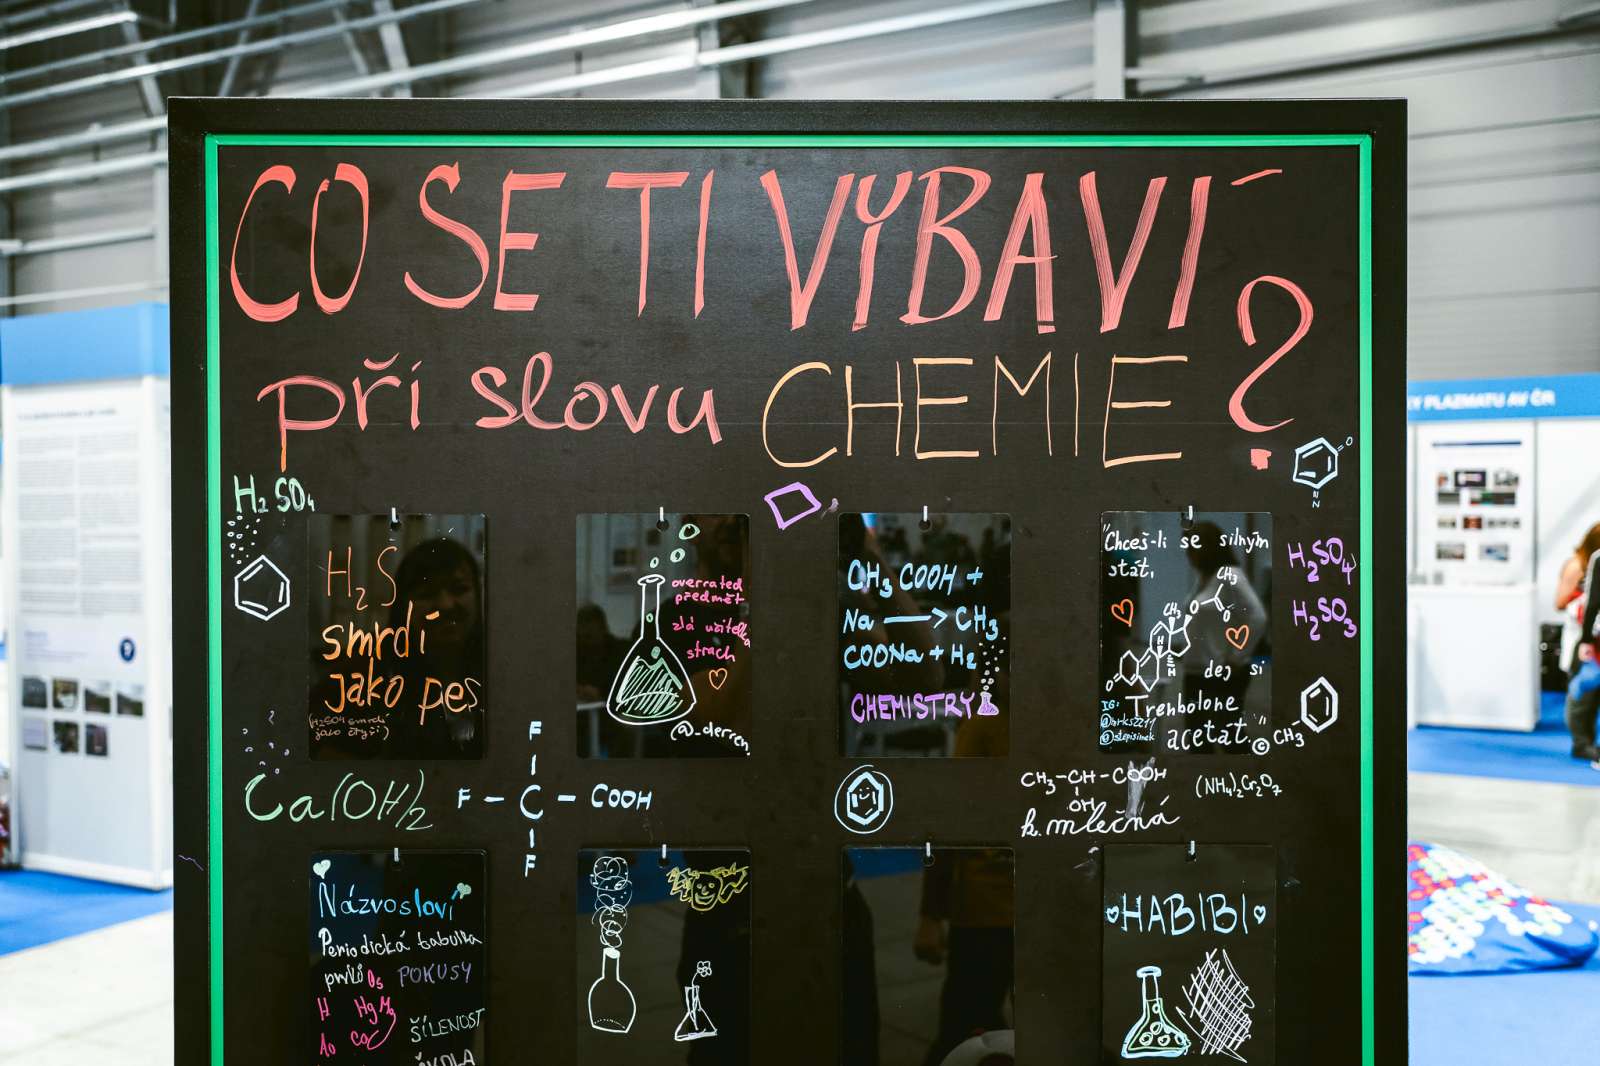 CO SE TI VYBAVÍ
při slovu CHEMIE ?
H₂SO₄
H₂S
smrdí
jako pes
(H₂SO₄ smrdí
jako čtyři)
overrated
předmět
zlá učitelka
strach
@_derren_
CH₃COOH +
Na → CH₃
COONa + H₂
CHEMISTRY
"Chceš-li se silným
stát,
CH₃
O
O
CH₃
H
H
H
O
dej si
Trenbolone
acetát."
©
IG:
O
N
H₂SO₄
H₂SO₃
CH₃
Ca(OH)₂
F
F – C – COOH
F
CH₃-CH-COOH
OH
k. mléčná
(NH₄)₂Cr₂O₇
Názvosloví
Periodická tabulka
prvků
Os
POKUSY
H
Hg
Mg
ŠÍLENOST
HABIBI
PLAZMATU AV ČR